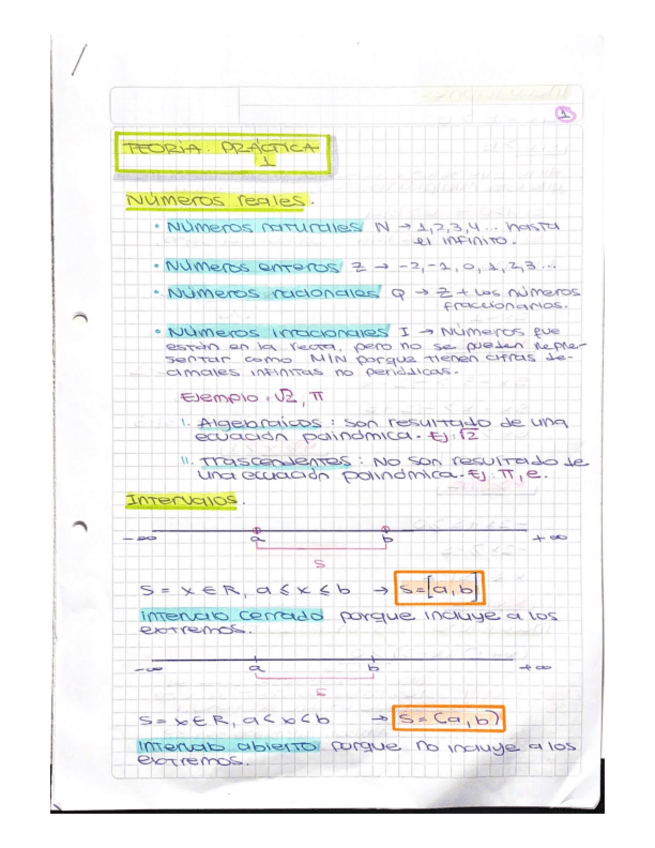 1
TEORIA PRÁCTICA
1
Números reales.
• Números naturales N → 1,2,3,4... hasta
el infinito.
• Números enteros Z → -2,-1,0,1,2,3...
• Números racionales Q → Z + los números
fraccionarios.
• Números irracionales I → Números que
están en la recta, pero no se pueden repre-
sentar como M/N porque tienen cifras de-
cimales infinitas no periódicas.
Ejemplo: √2, π
I. Algebraicos: son resultado de una
ecuación polinómica. Ej: √2
II. Trascendentes: No son resultado de
una ecuación polinómica. Ej: π, e.
Intervalos.
-∞ a b +∞
S
S = x ∈ R, a ≤ x ≤ b → S=[a,b]
Intervalo cerrado porque incluye a los
extremos.
-∞ a b +∞
S
S = x ∈ R, a < x < b → S=(a,b)
Intervalo abierto porque no incluye a los
extremos.